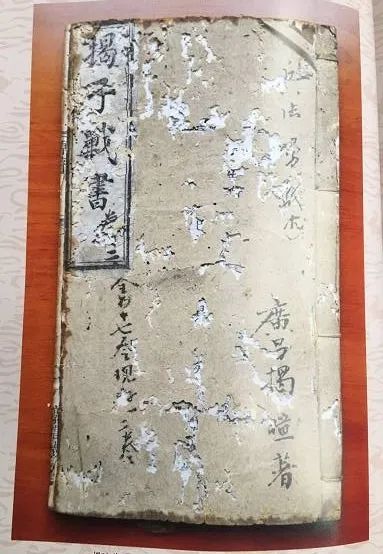 廣昌揭暄著
揭子戰書 卷三
全書十七卷現存一二卷